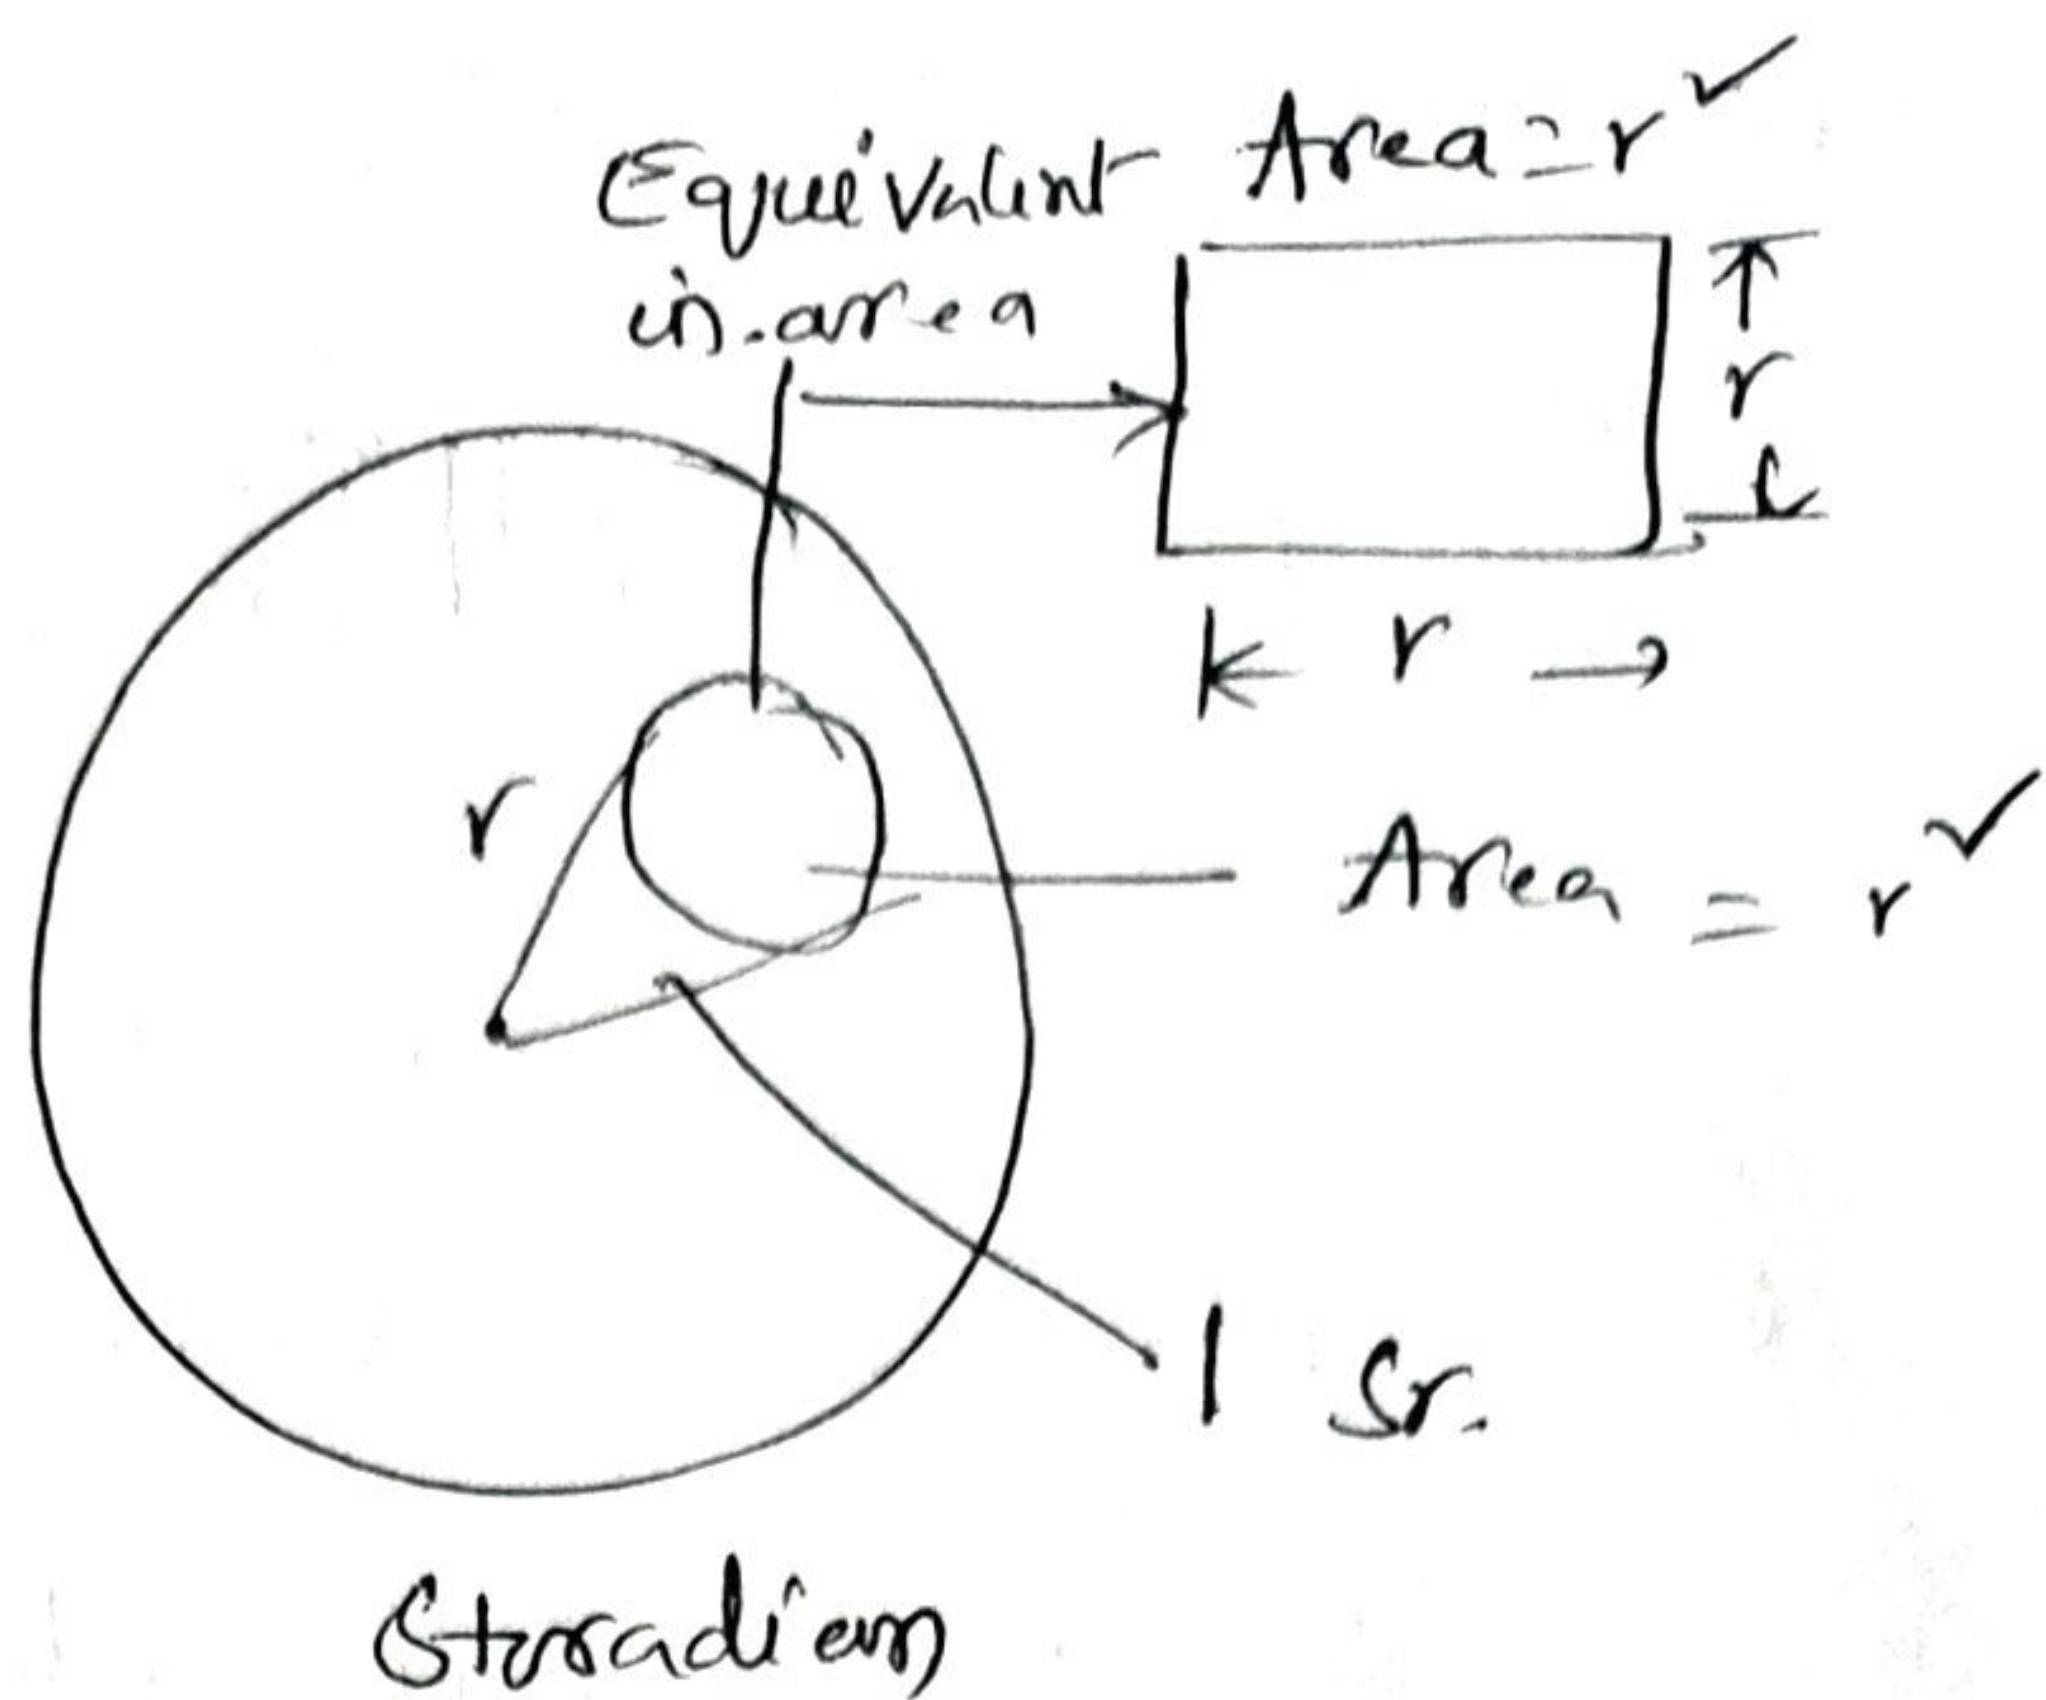 Equivalent
in area
Area = r²
r
r
r
Area = r²
1 Sr.
Steradian